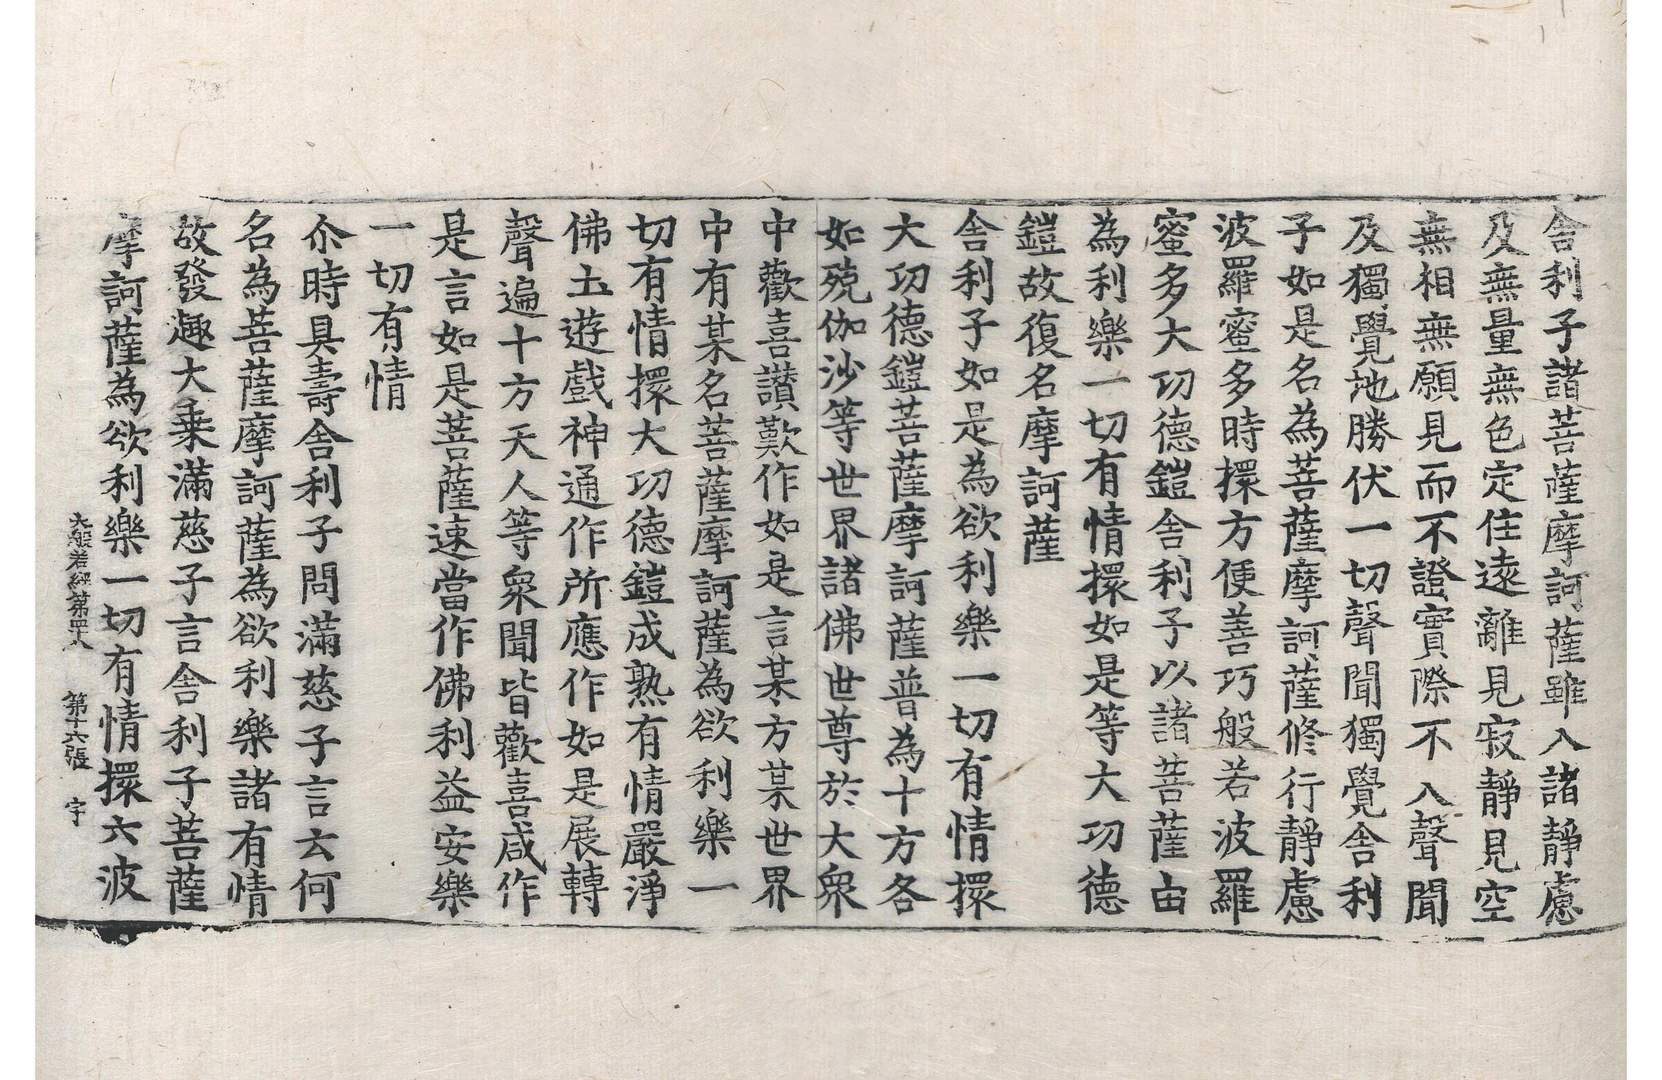 舎利子諸菩薩摩訶薩雖入諸靜慮
及無量無色定住遠離見寂靜見空
無相無願見而不證實際不入聲聞
及獨覺地勝伏一切聲聞獨覺舎利
子如是名為菩薩摩訶薩修行靜慮
波羅蜜多時擐方便善巧般若波羅
蜜多大功德鎧舎利子以諸菩薩由
為利樂一切有情擐如是等大功德
鎧故復名摩訶薩
舎利子如是為欲利樂一切有情擐
大功德鎧菩薩摩訶薩普為十方各
如殑伽沙等世界諸佛世尊於大衆
中歡喜讃歎作如是言某方某世界
中有某名菩薩摩訶薩為欲利樂一
切有情擐大功德鎧成熟有情嚴淨
佛土遊戲神通作所應作如是展轉
聲遍十方天人等衆聞皆歡喜咸作
是言如是菩薩速當作佛利益安樂
一切有情
尒時具壽舎利子問滿慈子言云何
名為菩薩摩訶薩為欲利樂諸有情
故發趣大乗滿慈子言舎利子菩薩
摩訶薩為欲利樂一切有情擐六波
大般若經第四十八 第十六張 宇